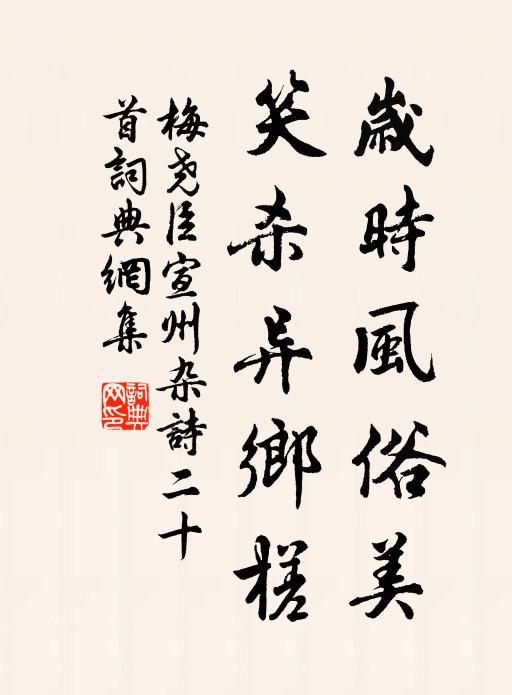 歲時風俗美
笑杀异鄉槎
梅尧臣宣州杂詩二十
首詞典網集
詞典
网印